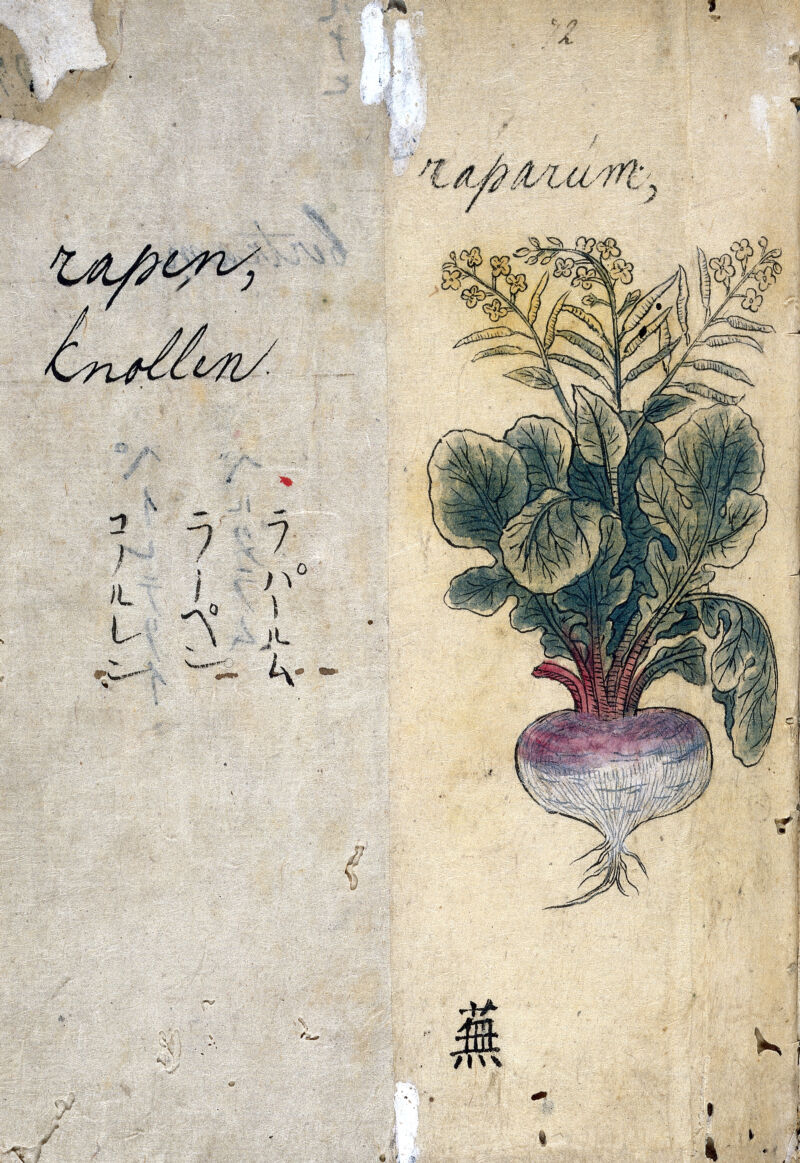 72
raparúm,
rapen,
knollen.
ラパールム
ラーペン
コノルレン
蕪